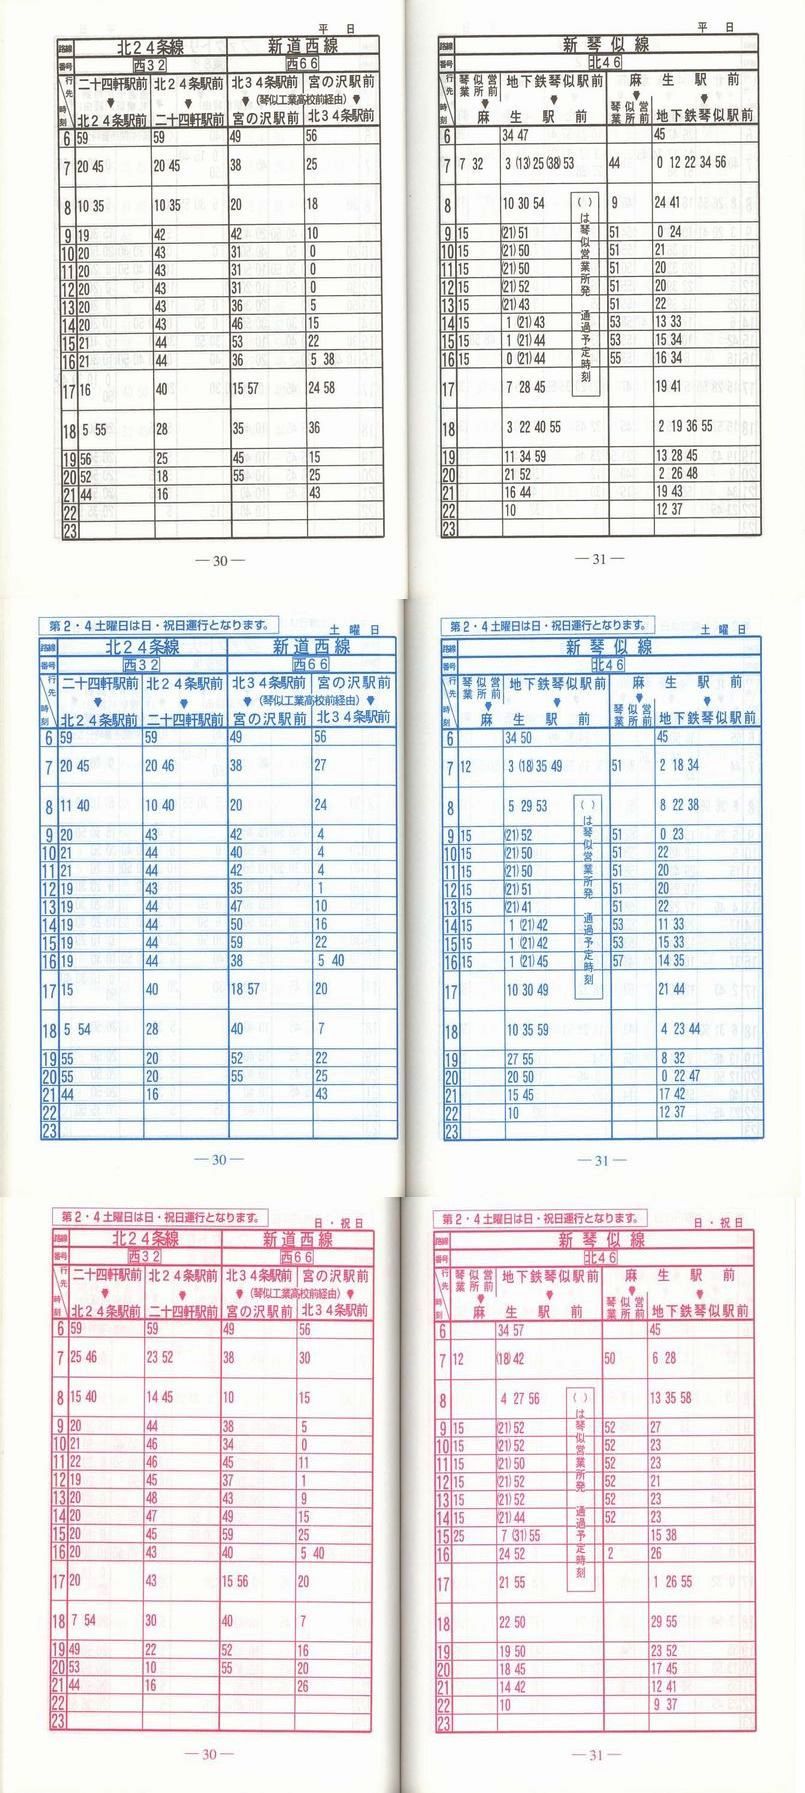 平　日
路線 北２４条線 新道西線
番号 西３２ 西６６
行先 二十四軒駅前 北２４条駅前 北３４条駅前 宮の沢駅前
▼ ▼ ▼ (琴似工業高校前経由) ▼
時刻 北２４条駅前 二十四軒駅前 宮の沢駅前 北３４条駅前
6 59 59 49 56
7 20 45 20 45 38 25
8 10 35 10 35 20 18
9 19 42 42 10
10 20 43 31 0
11 20 43 31 0
12 20 43 31 0
13 20 43 36 5
14 20 43 46 15
15 21 44 53 22
16 21 44 36 5 38
17 16 40 15 57 24 58
18 5 55 28 35 36
19 56 25 45 15
20 52 18 55 25
21 44 16 43
22
23
— 30 —
平　日
路線 新琴似線
番号 北４６
行先 琴似営業所前 地下鉄琴似駅前 麻生駅前
▼ ▼
時刻 麻生駅前 琴似営業所前 地下鉄琴似駅前
6 34 47 45
7 7 32 3 (13) 25 (38) 53 44 0 12 22 34 56
8 10 30 54 9 24 41
9 15 (21) 51 51 0 24
10 15 (21) 50 51 21
11 15 (21) 50 51 20
12 15 (21) 52 51 20
13 15 (21) 43 51 22
14 15 1 (21) 43 53 13 33
15 15 1 (21) 44 53 15 34
16 15 0 (21) 44 55 16 34
17 7 28 45 19 41
18 3 22 40 55 2 19 36 55
19 11 34 59 13 28 45
20 21 52 2 26 48
21 16 44 19 43
22 10 12 37
23
( )は琴似営業所発　通過予定時刻
— 31 —
第２・４土曜日は日・祝日運行となります。
土　曜　日
路線 北２４条線 新道西線
番号 西３２ 西６６
行先 二十四軒駅前 北２４条駅前 北３４条駅前 宮の沢駅前
▼ ▼ ▼ (琴似工業高校前経由) ▼
時刻 北２４条駅前 二十四軒駅前 宮の沢駅前 北３４条駅前
6 59 59 49 56
7 20 45 20 46 38 27
8 11 40 10 40 20 24
9 20 43 42 4
10 21 44 40 4
11 21 44 42 4
12 19 43 35 1
13 19 44 47 10
14 19 44 50 16
15 19 44 59 22
16 19 44 38 5 40
17 15 40 18 57 20
18 5 54 28 40 7
19 55 20 52 22
20 55 20 55 25
21 44 16 43
22
23
— 30 —
第２・４土曜日は日・祝日運行となります。
土　曜　日
路線 新琴似線
番号 北４６
行先 琴似営業所前 地下鉄琴似駅前 麻生駅前
▼ ▼
時刻 麻生駅前 琴似営業所前 地下鉄琴似駅前
6 34 50 45
7 12 3 (18) 35 49 51 2 18 34
8 5 29 53 8 22 38
9 15 (21) 52 51 0 23
10 15 (21) 50 51 22
11 15 (21) 50 51 20
12 15 (21) 51 51 20
13 15 (21) 41 51 22
14 15 1 (21) 42 53 11 33
15 15 1 (21) 42 53 15 33
16 15 1 (21) 45 57 14 35
17 10 30 49 21 44
18 10 35 59 4 23 44
19 27 55 8 32
20 20 50 0 22 47
21 15 45 17 42
22 10 12 37
23
( )は琴似営業所発　通過予定時刻
— 31 —
第２・４土曜日は日・祝日運行となります。
日・祝日
路線 北２４条線 新道西線
番号 西３２ 西６６
行先 二十四軒駅前 北２４条駅前 北３４条駅前 宮の沢駅前
▼ ▼ ▼ (琴似工業高校前経由) ▼
時刻 北２４条駅前 二十四軒駅前 宮の沢駅前 北３４条駅前
6 59 59 49 56
7 25 46 23 52 38 30
8 15 40 14 45 10 15
9 20 44 38 5
10 21 46 34 0
11 22 46 45 11
12 19 45 37 1
13 20 48 43 9
14 20 47 49 15
15 20 45 59 25
16 20 43 40 5 40
17 20 43 15 56 20
18 7 54 30 40 7
19 49 22 52 16
20 53 10 55 20
21 44 16 26
22
23
— 30 —
第２・４土曜日は日・祝日運行となります。
日・祝日
路線 新琴似線
番号 北４６
行先 琴似営業所前 地下鉄琴似駅前 麻生駅前
▼ ▼
時刻 麻生駅前 琴似営業所前 地下鉄琴似駅前
6 34 57 45
7 12 (18) 42 50 6 28
8 4 27 56 13 35 58
9 15 (21) 52 52 27
10 15 (21) 52 52 23
11 15 (21) 50 52 23
12 15 (21) 52 52 21
13 15 (21) 52 52 23
14 15 (21) 44 52 23
15 25 7 (31) 55 15 38
16 24 52 2 26
17 21 55 1 26 55
18 22 50 29 55
19 19 50 23 52
20 18 45 17 45
21 14 42 12 41
22 10 9 37
23
( )は琴似営業所発　通過予定時刻
— 31 —